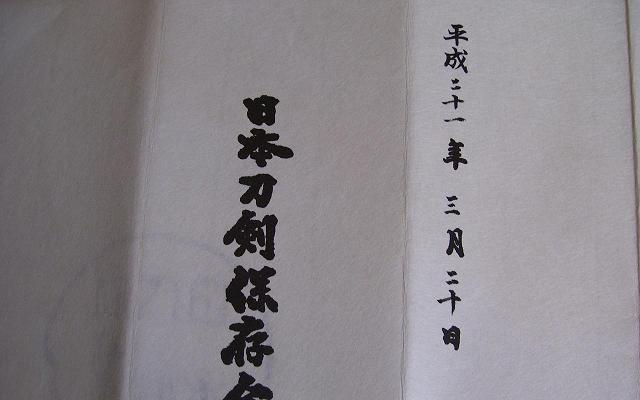 平成二十一年 三月二十日
日本刀剣保存会